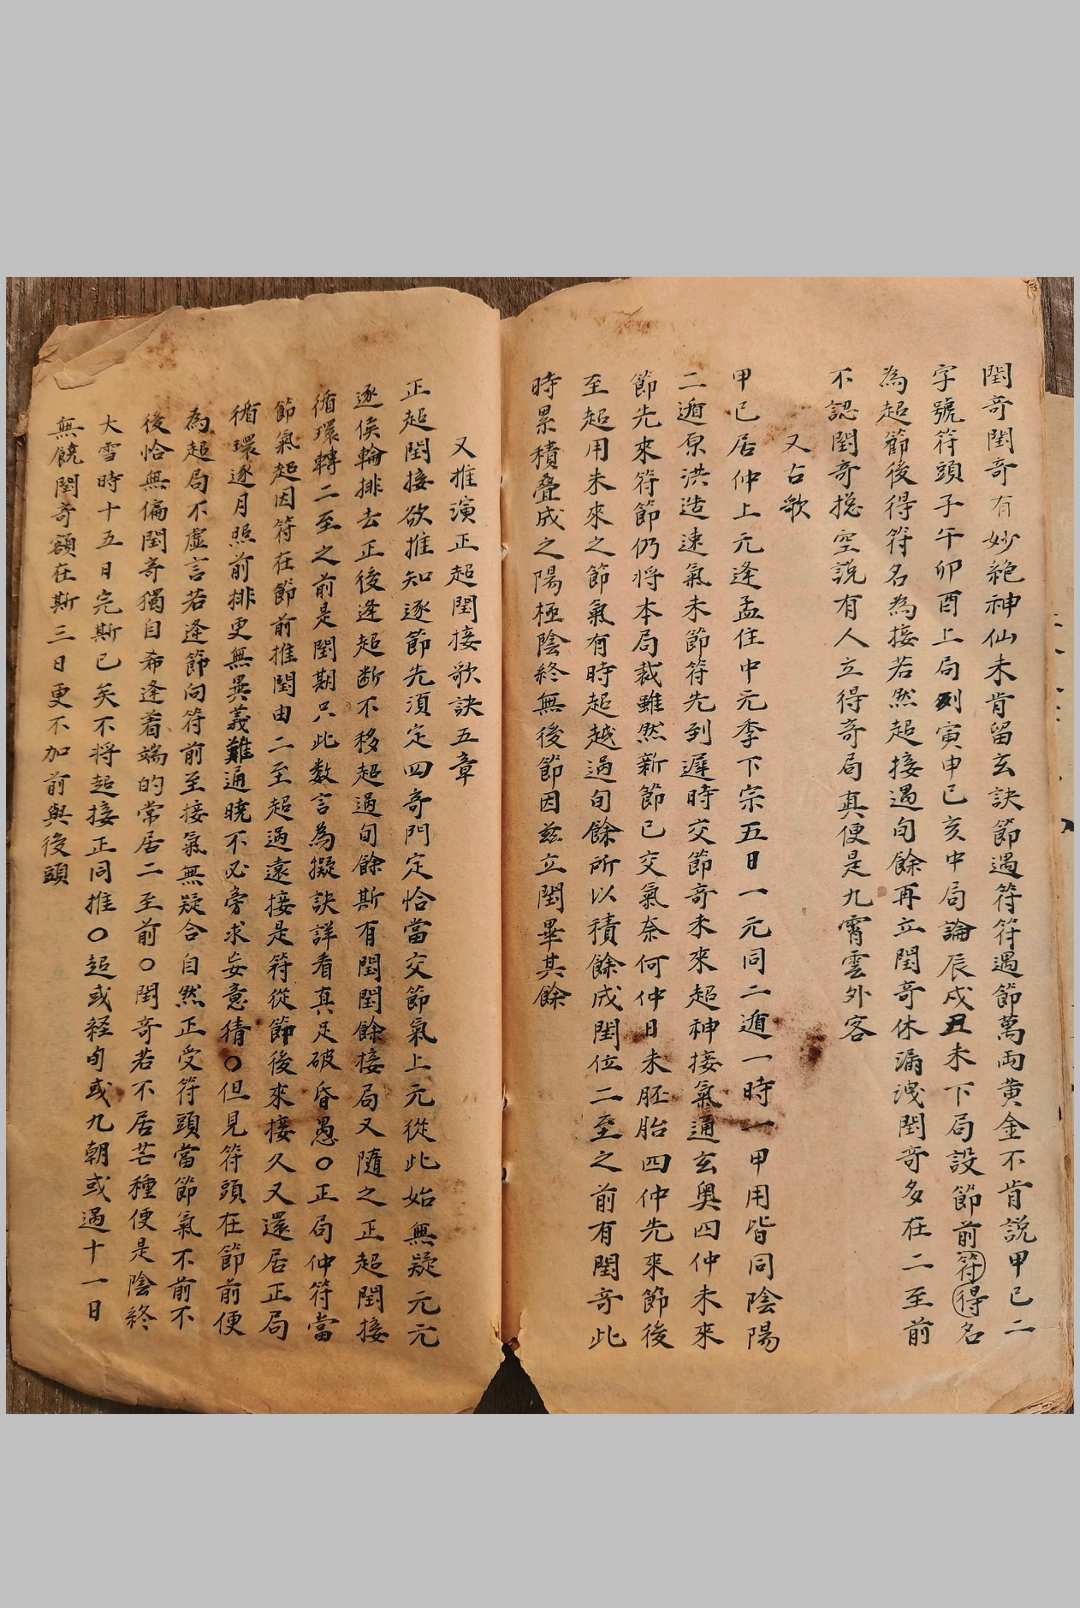 閏奇閏奇有妙絕神仙未肯留玄訣節遇符符遇節萬両黄金不肯說甲己二
字號符頭子午卯酉上局列寅申巳亥中局論辰戌丑未下局設節前符得名
為超節後得符名為接若然超接遇旬餘再立閏奇休漏洩閏奇多在二至前
不認閏奇摠空說有人立得奇局真便是九霄雲外客
又古歌
甲己居仲上元逢孟住中元季下宗五日一元同二遁一時一甲用皆同陰陽
二遁原洪造速氣未節符先到遲時交節奇未來超神接氣通玄奥四仲未來
節先來符節仍將本局裁雖然新節已交氣奈何仲日未胚胎四仲先來節後
至超用未來之節氣有時超越過旬餘所以積餘成閏位二至之前有閏奇此
時累積疊成之陽極陰終無後節因兹立閏畢其餘
又推演正超閏接歌訣五章
正超閏接欲推知逐節先須定四奇門定恰當交節氣上元從此始無疑元元
逐侯輪排去正後逢超断不移超過旬餘斯有閏閏餘接局又隨之正超閏接
循環轉二至之前是閏期只此数言為擬訣詳看真足破昏愚○正局仲符當
節氣起因符在節前推閏由二至超過遠接是符從節後來接久又還居正局
循環逐月照前排更無異義難通曉不必旁求妄意猜○但見符頭在節前便
為超局不虛言若逢節向符前至接氣無疑合自然正受符頭當節氣不前不
後恰無偏閏奇獨自希逢着端的常居二至前○閏奇若不居芒種便是陰終
大雪時十五日完斯已矣不將超接正同推○超或経旬或九朝或過十一日
無饒閏奇額在斯三日更不加前與後頭